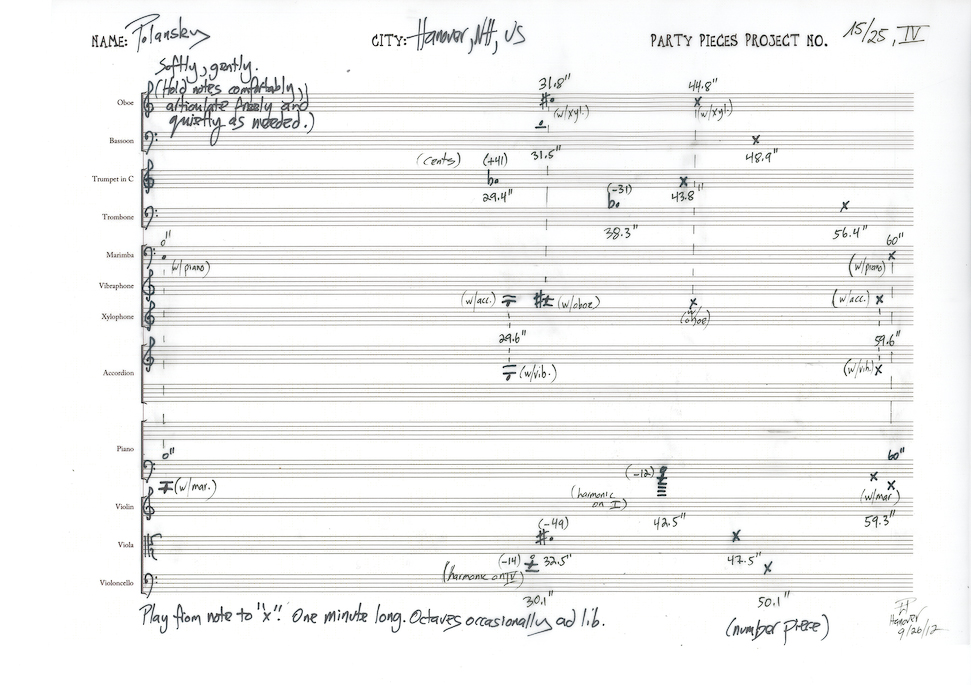 NAME: Polansky CITY: Hanover, NH, US PARTY PIECES PROJECT NO. 15/25, IV
Softly, gently.
(Hold notes comfortably,
articulate freely and
quietly as needed.)
31.8" 44.8"
Oboe
(w/xyl.) (w/xyl.)
Bassoon
(cents) (+41) 31.5" 48.9"
Trumpet in C
29.4" (-31) 43.8"
Trombone
38.3" 56.4"
0" 60"
Marimba
(w/piano) (w/piano)
Vibraphone
(w/acc.) (w/oboe) (w/acc.)
Xylophone (w/oboe)
29.6" 59.6"
Accordion (w/vib.) (w/vib.)
Piano
0" 60"
(-12)
(w/mar.) (harmonic on I) (w/mar.)
Violin
(-49) 42.5" 59.3"
Viola
(-14) 32.5" 47.5"
(harmonic on IV)
Violoncello
30.1" 50.1"
Play from note to "x". One minute long. Octaves occasionally ad lib. (number piece)
LP
Hanover
9/26/12